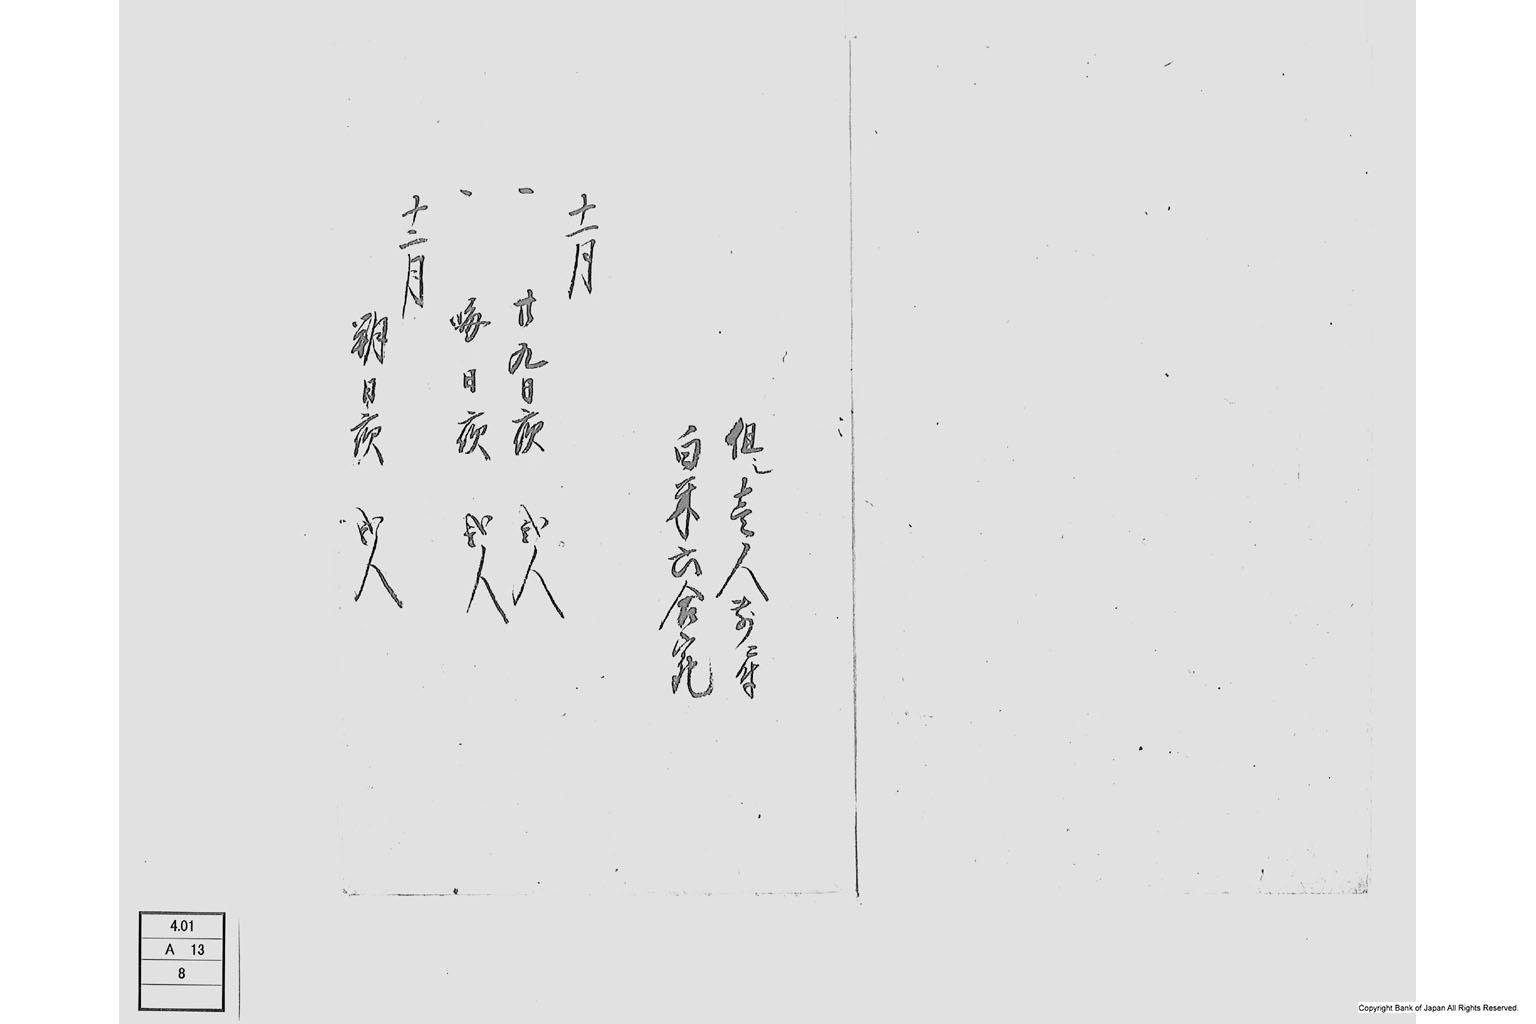 但し壱人前一夜
白米六合宛
十一月
一 廿九日夜 弐人
一 晦日夜 弐人
十二月
朔日夜 弐人
4.01
A 13
8
Copyright Bank of Japan All Rights Reserved.